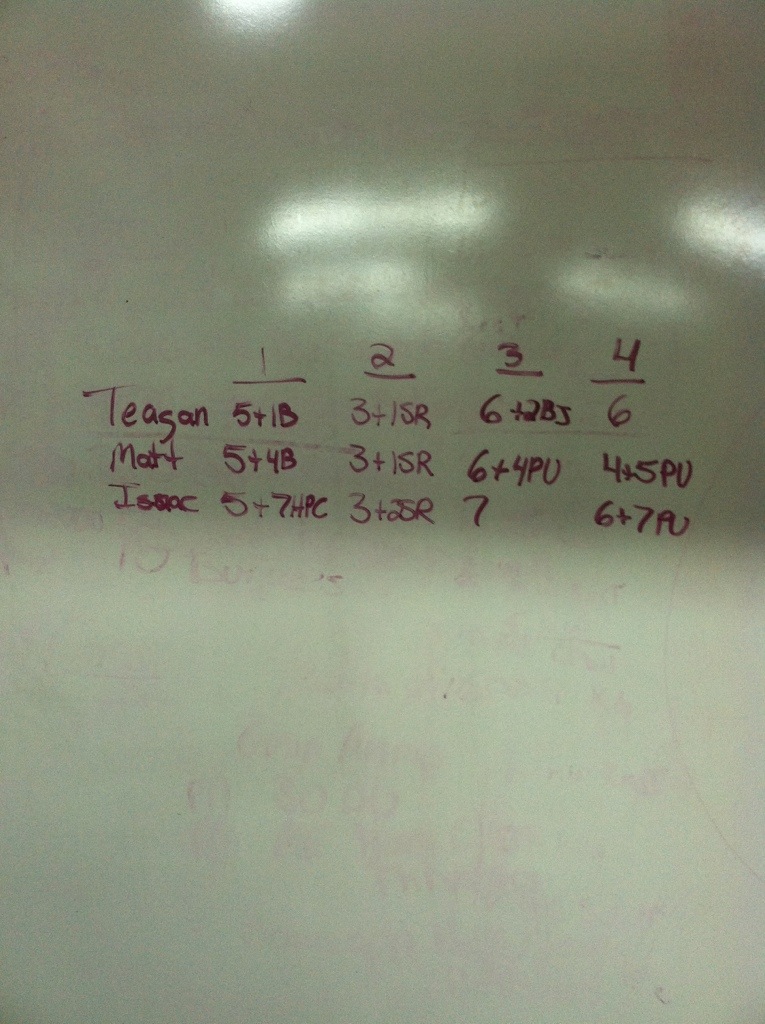 1 2 3 4
Teagan 5+1B 3+1SR 6+2BJ 6
Matt 5+4B 3+1SR 6+4PU 4+5PU
Isaac 5+7HPC 3+2SR 7 6+7PU